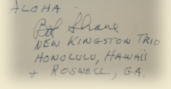 ALOHA
Bob Shane
NEW KINGSTON TRIO
HONOLULU, HAWAII
+ ROSWELL, GA.